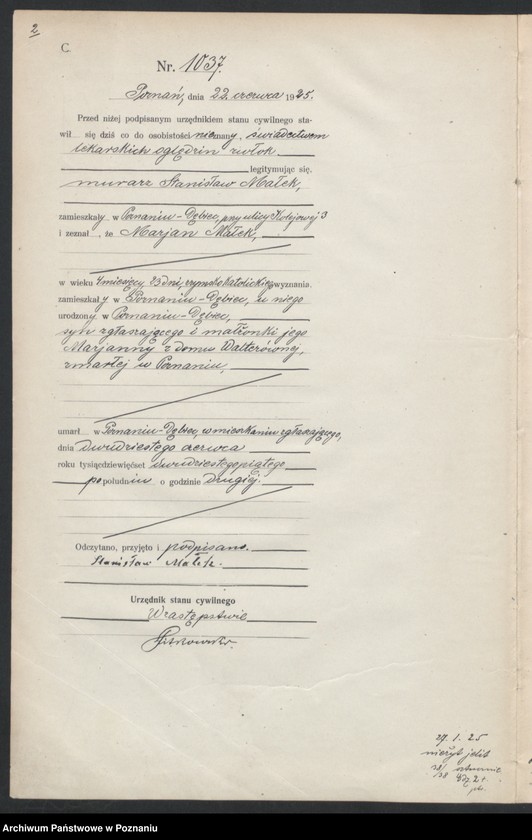 2
C.
Nr. 1037.
Poznań, dnia 22. czerwca 1925.
Przed niżej podpisanym urzędnikiem stanu cywilnego sta-
wił się dziś co do osobistości nieznany, świadectwem
lekarskich oględzin zwłok
legitymując się.
murarz Stanisław Małek,
zamieszkały w Poznaniu-Dębiec, przy ulicy Kolejowej 3
i zeznał, że Marjan Małek,
w wieku 4 miesięcy, 23 dni, rzymsko katolickiego wyznania.
zamieszkały w Poznaniu-Dębiec, u niego
urodzony w Poznaniu-Dębiec,
syn zgłaszającego i małżonki jego
Marjanny z domu Walterównej,
zmarłej w Poznaniu,
umarł w Poznaniu-Dębiec, w mieszkaniu zgłaszającego,
dnia dwudziestego czerwca
roku tysiącdziewięćset dwudziestegopiątego
po południu o godzinie drugiej.
Odczytano, przyjęto i podpisano.
Stanisław Małek.
Urzędnik stanu cywilnego
W zastępstwie
29. 1. 25
nieżyt jelit
Archiwum Państwowe w Poznaniu